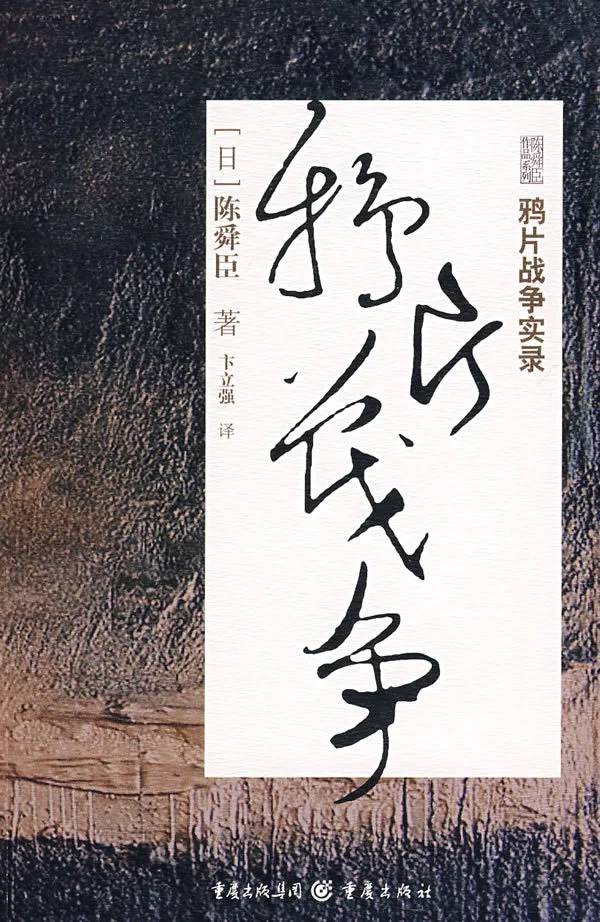 陈舜臣
作品系列
鸦片战争实录
鸦片战争
[日]陈舜臣 著
卞立强 译
重庆出版集团 重庆出版社